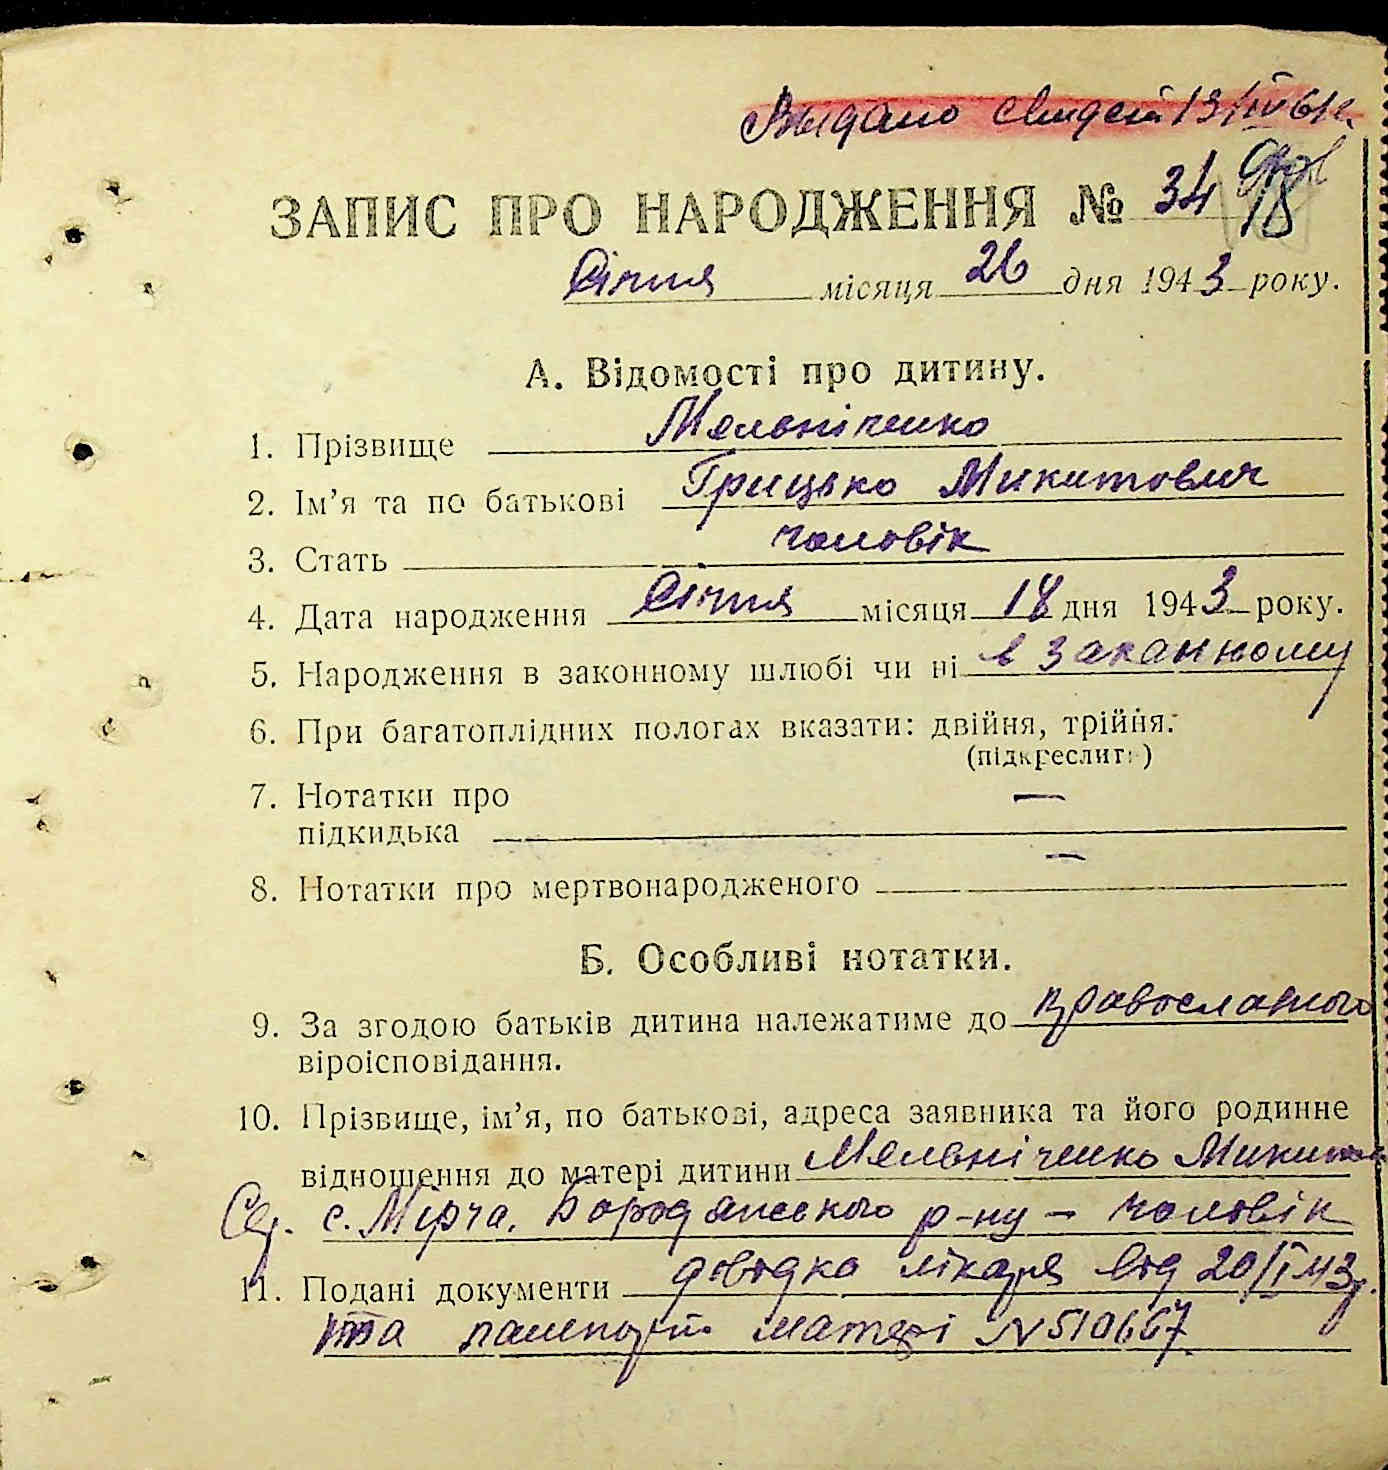 Выдано свидет 13/IV 61г.
ЗАПИС ПРО НАРОДЖЕННЯ № 34 98
Січня місяця 26 дня 1943 року.
А. Відомості про дитину.
1. Прізвище Мельніченко
2. Ім'я та по батькові Грицько Микитович
3. Стать чоловік
4. Дата народження Січня місяця 18 дня 1943 року.
5. Народження в законному шлюбі чи ні в законному
6. При багатоплідних пологах вказати: двійня, трійня.
(підкреслити)
7. Нотатки про —
підкидька
8. Нотатки про мертвонародженого —
Б. Особливі нотатки.
9. За згодою батьків дитина належатиме до православного
віроісповідання.
10. Прізвище, ім'я, по батькові, адреса заявника та його родинне
відношення до матері дитини Мельніченко Микита
с. Мірча, Бородянського р-ну – чоловік
11. Подані документи довідка лікаря від 20/I 43р.
та паспорт матері N 510667